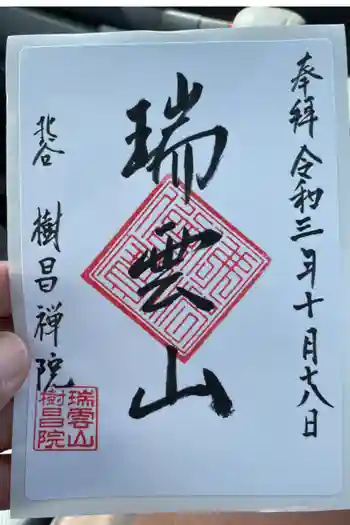 奉拝 令和三年十月十八日
瑞雲山
北谷 樹昌禅院
瑞雲山
樹昌院